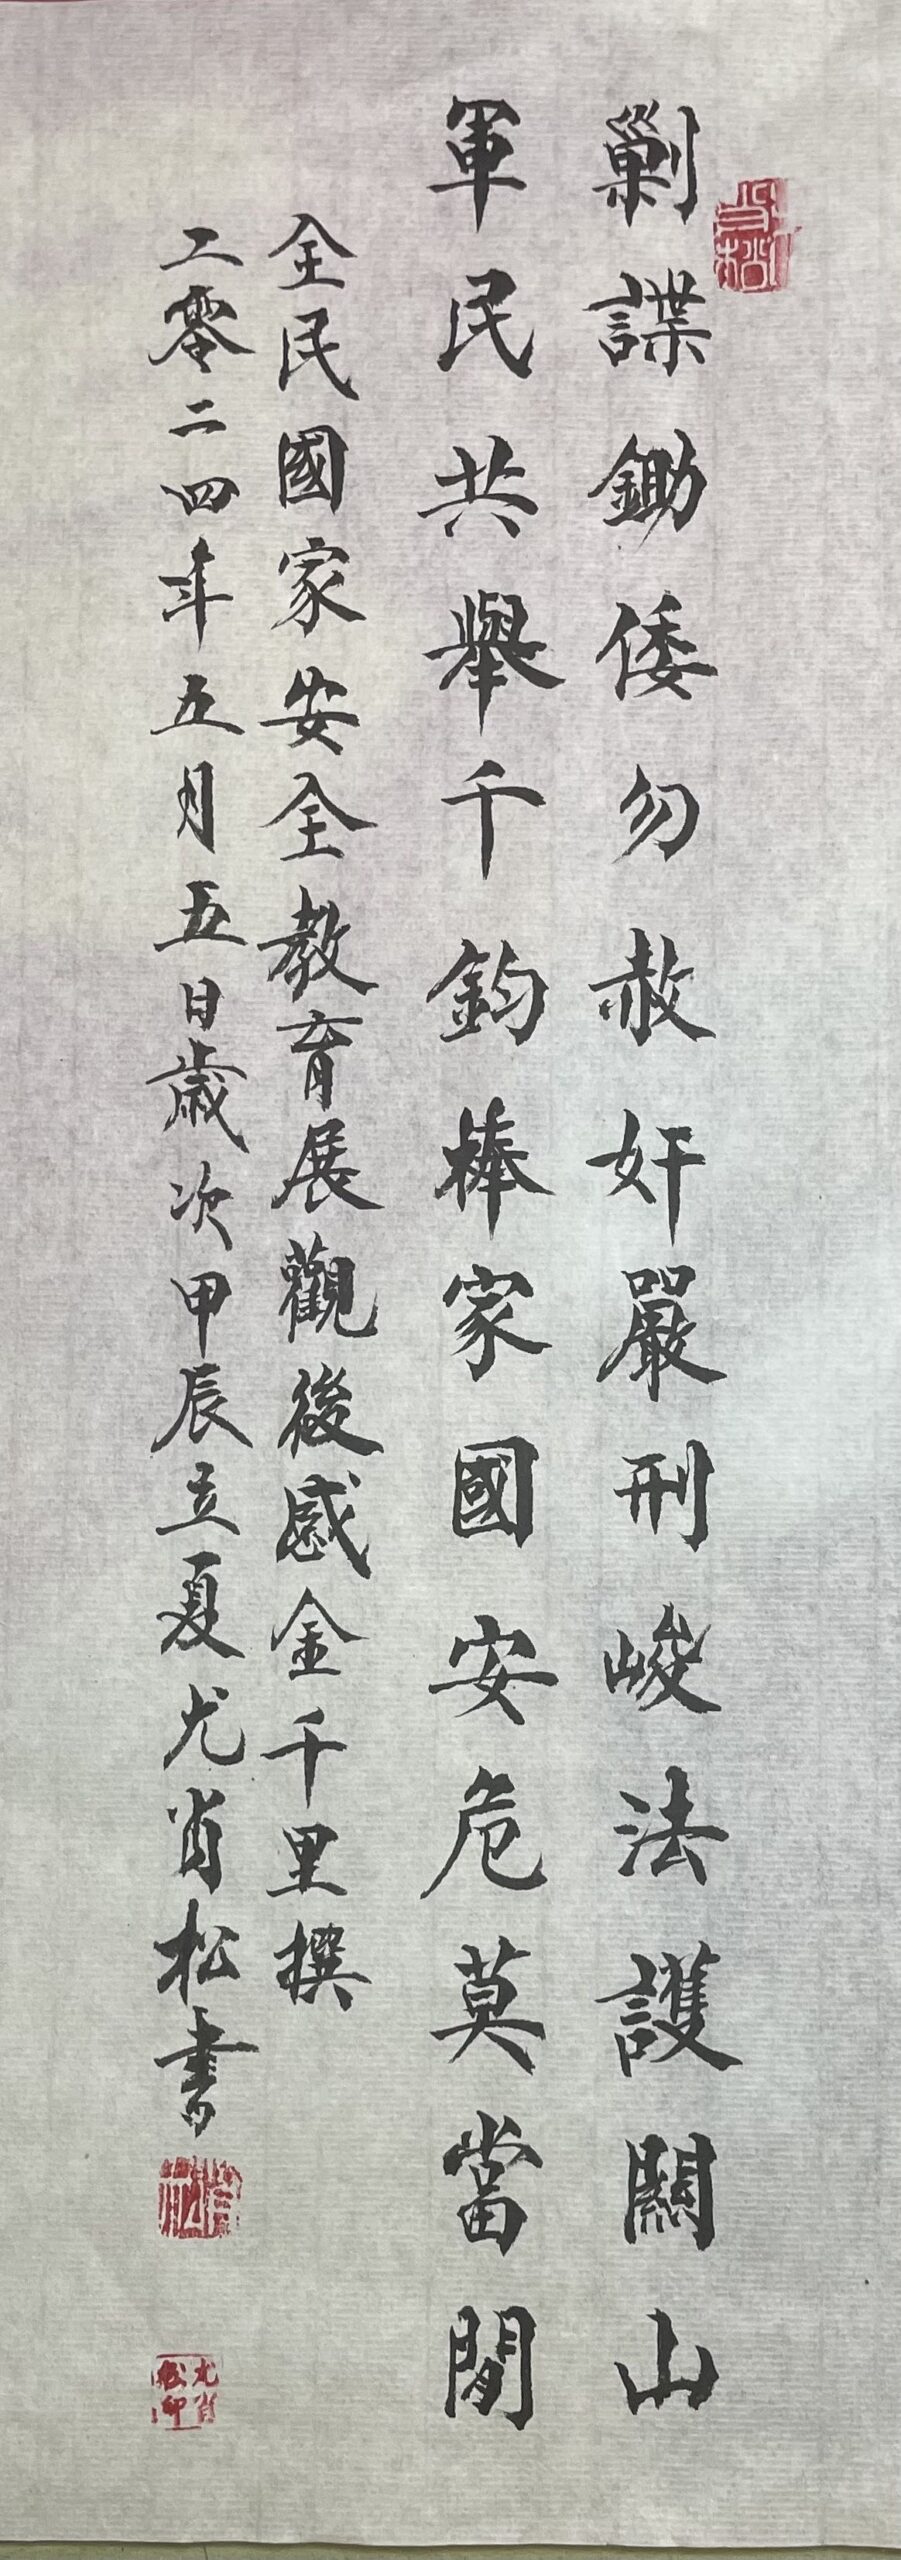 剿諜鋤倭勿赦奸嚴刑峻法護關山
軍民共舉千鈞棒家國安危莫當閒
全民國家安全教育展觀後感金千里撰
二零二四年五月五日歲次甲辰立夏尤肖松書
肖松
尤肖松印